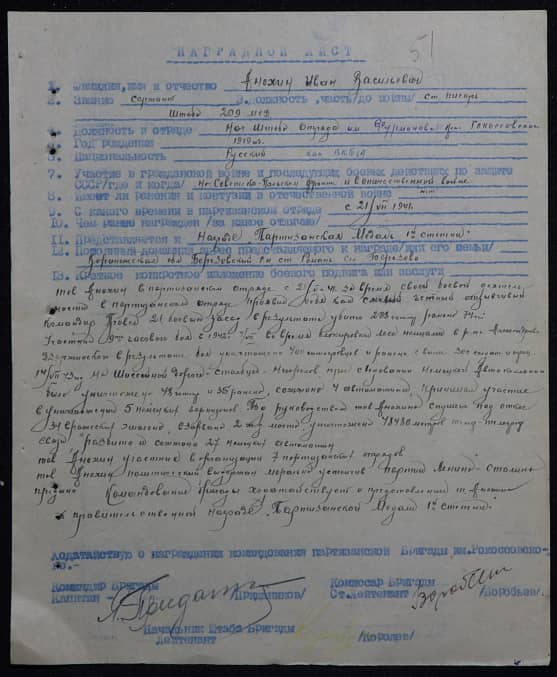 НАГРАДНОЙ ЛИСТ
51
1. Фамилия, имя и отчество Анохин Иван Васильевич
2. Звание сержант 3. Должность, часть /до войны/ ст. писарь
Штаба 209
4. Должность в отряде Нач Штаба Отряда им Фурманова бриг Рокоссовского
5. Год рождения 1919г.
6. Национальность Русский чл ВКП(б)
7. Участие в гражданской войне и последующих боевых действиях по защите
СССР /где и когда/ на Советско-Польском фронте и в отечественной войне
8. Имеет ли ранения и контузии в отечественной войне нет
9. С какого времени в партизанском отряде с 21/VII 1941г.
10. Чем ранее награжден /за какое отличие/
11. Представляется к Награде "Партизанская Медаль 1ой степени"
12. Постоянный домашний адрес представляемого к награде /или его семьи/
Воронежская обл Березовский р-н ст Рамонь с/с Березово
13. Краткое конкретное изложение боевого подвига или заслуги
тов Анохин в партизанском отряде с 21/VII-41г. за время своей боевой деятель-
ности в партизанском отряде проявил себя как смелый четкий отличивый
Командир провел 21 боевых засад в результате убито 298 ранено
Участник 9ти часового боя с 1942г. во время блокировки леса немцами в р-не
в результате боя уничтожено 400 и ранено свыше 300
14/VII 43г. на Шоссейной дороге Столбцы - Негорелов при немецкой Автоколонны
было уничтожено 48 и 35 ранено, сожжено 4 автомашины, Принимал участие
в уничтожении 5 немецких гарнизонов. Под руководством тов Анохина спущено под откос
31 вражеский эшелон, взорвано 2 моста, уничтожено 18480 метров
связи разбито и сожжено 27 немецких автомашин
тов Анохин участник в организации 7 партизанских отрядов
тов Анохин политически выдержан морально устойчив партии Ленина - Сталина
предан Командование бригады ходатайствует о предоставлении т. Анохина
к правительственной награде "Партизанской Медали 1ой степени".
Ходатайствую о награждении командования партизанской Бригады им. Рокоссовско-
го.-
Командир Бригады Комиссар Бригады
Капитан /Придатников/ Ст. Лейтенант /Воробьев/
Начальник Штаба Бригады
Лейтенант /Королев/